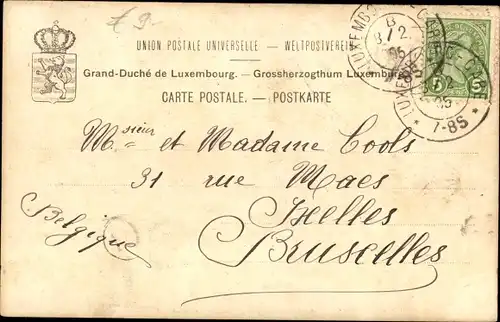 UNION POSTALE UNIVERSELLE. — WELTPOSTVEREIN
Grand-Duché de Luxembourg. — Grossherzogthum Luxemburg
CARTE POSTALE. — POSTKARTE
5 5
7-8S
Msieur et Madame Cools
31 rue Maes
Ixelles
Bruxelles
Belgique